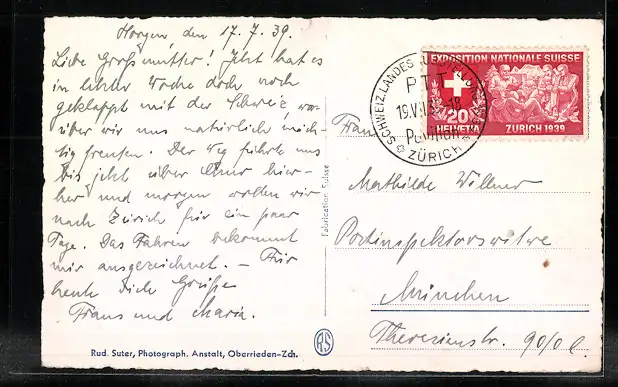 Horgen, den 17. 7. 39.
Liebe Großmutter! Jetzt hat es
in letzter Woche doch noch
geklappt mit der Schweiz, wo-
rüber wir uns natürlich mäch-
tig freuten. Der Weg führte uns
bis jetzt über Chur hier-
her und morgen wollen wir
nach Zürich für ein paar
Tage. Das Fahren bekommt
mir ausgezeichnet. – Für
heute Dich Grüße
Franz und Maria.
Rud. Suter, Photograph. Anstalt, Oberrieden-Zch.
Fabrication Suisse
RS
EXPOSITION NATIONALE SUISSE
20
HELVETIA ZURICH 1939
SCHWEIZ. LANDES
PTT
Pavillon
ZÜRICH
Frau
Mathilde Willner
Postinspektorswitwe
München
Theresienstr. 90/0 l.